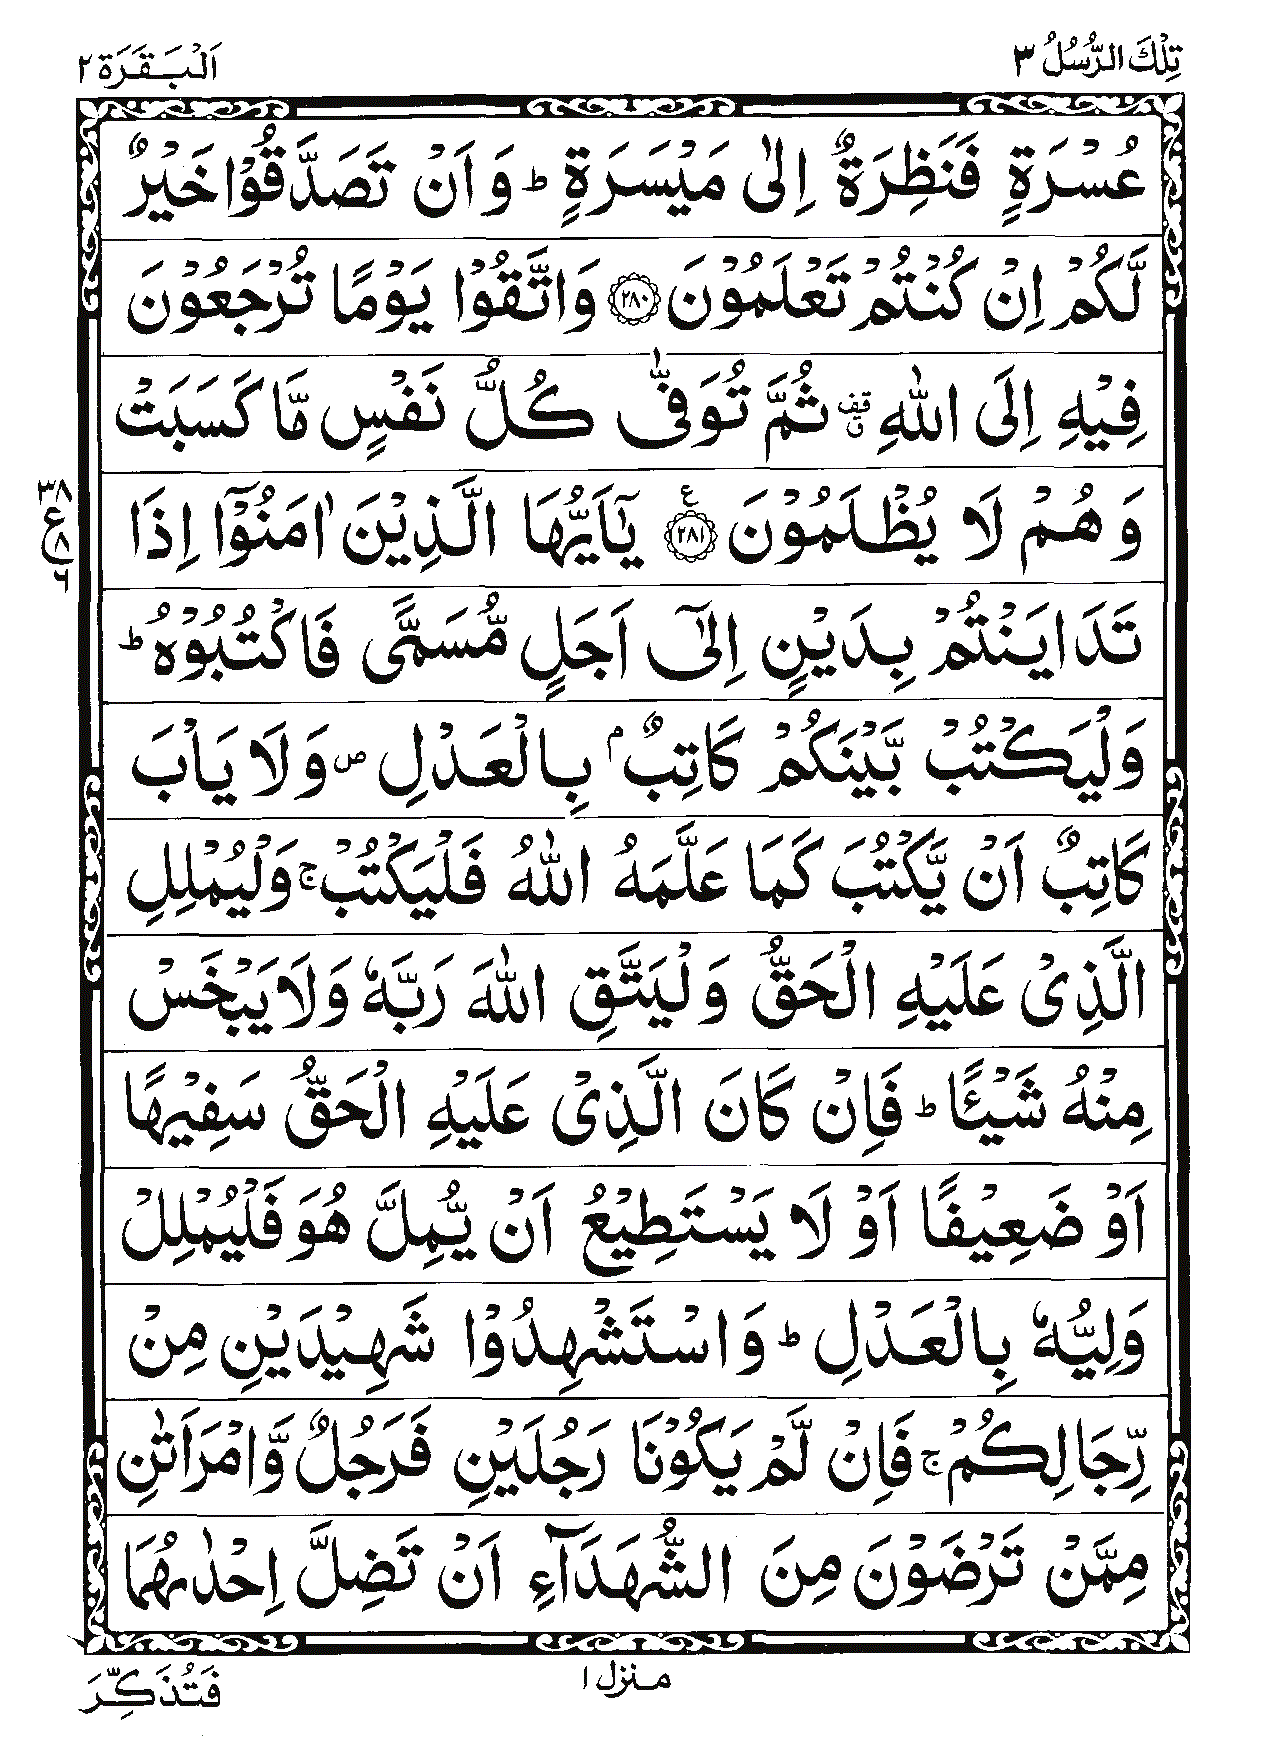 تِلْكَ الرُّسُلُ ٣
اَلْبَقَرَة ٢
عُسْرَةٍ فَنَظِرَةٌ اِلٰى مَيْسَرَةٍ ؕ وَ اَنْ تَصَدَّقُوْا خَيْرٌ
لَّكُمْ اِنْ كُنْتُمْ تَعْلَمُوْنَ ﴿۲۸۰﴾ وَاتَّقُوْا يَوْمًا تُرْجَعُوْنَ
فِيْهِ اِلَى اللّٰهِ ۥۚ ثُمَّ تُوَفّٰى كُلُّ نَفْسٍ مَّا كَسَبَتْ
وَ هُمْ لَا يُظْلَمُوْنَ ﴿۲۸۱﴾ ع يٰۤاَيُّهَا الَّذِيْنَ اٰمَنُوْۤا اِذَا
تَدَايَنْتُمْ بِدَيْنٍ اِلٰۤى اَجَلٍ مُّسَمًّى فَاكْتُبُوْهُ ؕ
وَلْيَكْتُبْ بَّيْنَكُمْ كَاتِبٌۢ بِالْعَدْلِ ۪ وَلَا يَاْبَ
كَاتِبٌ اَنْ يَّكْتُبَ كَمَا عَلَّمَهُ اللّٰهُ فَلْيَكْتُبْ ۚ وَلْيُمْلِلِ
الَّذِىْ عَلَيْهِ الْحَقُّ وَلْيَتَّقِ اللّٰهَ رَبَّهٗ وَلَا يَبْخَسْ
مِنْهُ شَيْـًٔا ؕ فَاِنْ كَانَ الَّذِىْ عَلَيْهِ الْحَقُّ سَفِيْهًا
اَوْ ضَعِيْفًا اَوْ لَا يَسْتَطِيْعُ اَنْ يُّمِلَّ هُوَ فَلْيُمْلِلْ
وَلِيُّهٗ بِالْعَدْلِ ؕ وَاسْتَشْهِدُوْا شَهِيْدَيْنِ مِنْ
رِّجَالِكُمْ ۚ فَاِنْ لَّمْ يَكُوْنَا رَجُلَيْنِ فَرَجُلٌ وَّامْرَاَتٰنِ
مِمَّنْ تَرْضَوْنَ مِنَ الشُّهَدَآءِ اَنْ تَضِلَّ اِحْدٰٮهُمَا
٣٨
ع
٨
٦
منزل ١
فَتُذَكِّرَ